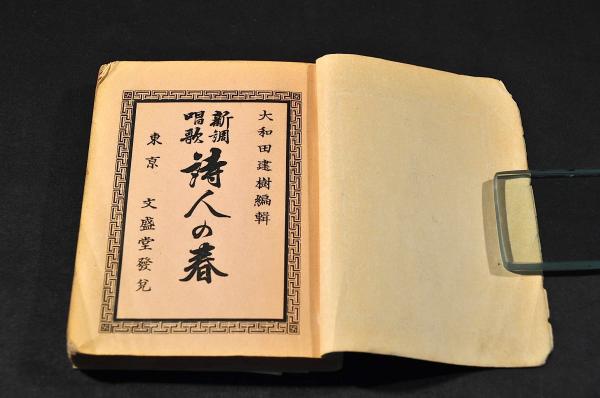 大和田建樹編輯
新調
唱歌
詩人の春
東京 文盛堂發兌